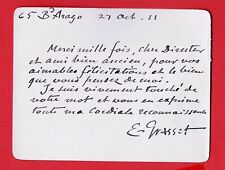 65 Bd Arago 27 Oct. 11
Merci mille fois, cher Directeur
et ami bien ancien, pour vos
aimables félicitations et le bien
que vous pensez de moi.
Je suis vivement touché de
votre mot et vous en exprime
toute ma cordiale reconnaissance
E Grasset